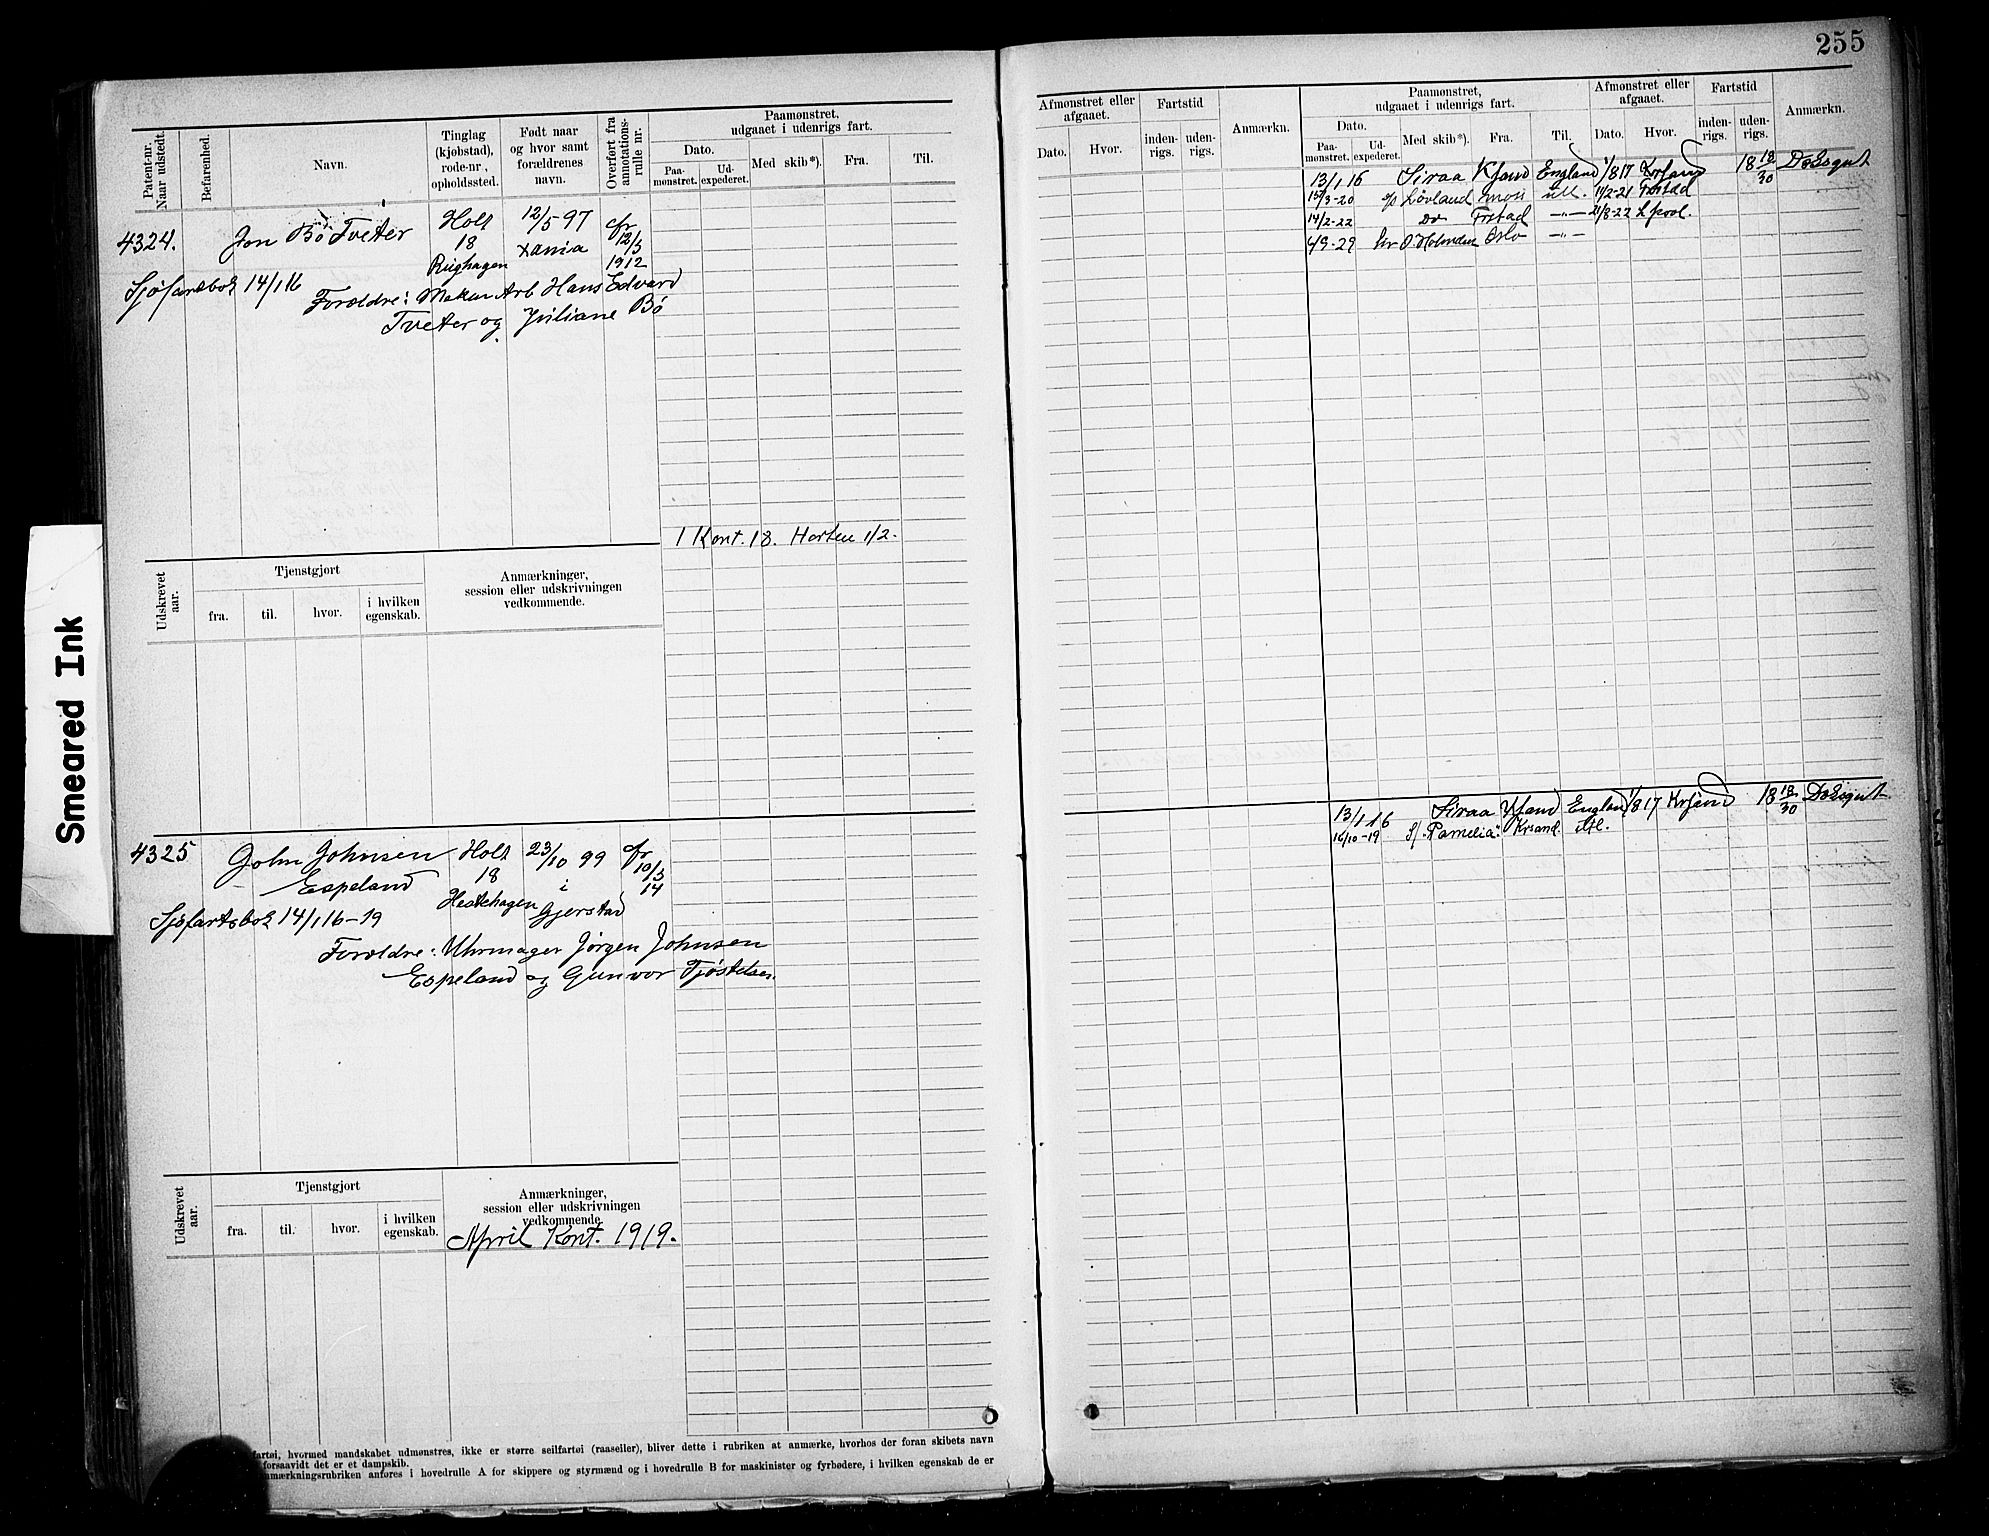 255
Patent-nr.
Naar udstedt.
Befarenhed.
Navn.
Tinglag
(kjøbstad),
rode-nr,
opholdssted.
Født naar
og hvor samt
forældrenes
navn.
Overført fra
annotations-
rulle nr.
Paamønstret,
udgaaet i udenrigs fart.
Dato.
Paa-
mønstret.
Ud-
expederet.
Med skib*).
Fra.
Til.
4324.
Jon Bö Tveter
Holt
18
12/5 97
12/5
1912
Sjøfartsbok 14/1 16
Forældre: Hans Edvard
Tveter og Juliane Bö
1 Kont. 18. Horten 1/2.
Udskrevet
aar.
Tjenstgjort
fra.
til.
hvor.
i hvilken
egenskab.
Anmærkninger,
session eller udskrivningen
vedkommende.
Smeared Ink
4325
John Johnsen
Espeland
Holt
18
Hestehagen
23/10 99
i
Gjerstad
10/3
14
Sjøfartsbok 14/1 16-19
Forældre: Uhrmager Jørgen Johnsen
Espeland og Gunvor
Udskrevet
aar.
Tjenstgjort
fra.
til.
hvor.
i hvilken
egenskab.
Anmærkninger,
session eller udskrivningen
vedkommende.
April Kont. 1919.
fartøi, hvormed mandskabet udmønstres, ikke er større seilfartøi (raaseiler), bliver dette i rubriken at anmærke, hvorhos der foran skibets navn
forsaavidt det er et dampskib.
mærkningsrubriken anføres i hovedrulle A for skippere og styrmænd og i hovedrulle B for maskinister og fyrbødere, i hvilken egenskab de er
Afmønstret eller
afgaaet.
Dato.
Hvor.
Fartstid
inden-
rigs.
uden-
rigs.
Anmærkn.
Paamønstret,
udgaaet i udenrigs fart.
Dato.
Paa-
mønstret.
Ud-
expederet.
Med skib*).
Fra.
Til.
Afmønstret eller
afgaaet.
Dato.
Hvor.
Fartstid
inden-
rigs.
uden-
rigs.
Anmærkn.
13/1 16 Siraa Kfsand England 1/8 17 Krsand 18 18/30
Lövland 11/2-21 Frstad
14/2-22 Do Frstad -"- 21/8-22 Lpool.
4/9-29 Oslo -"-
13/1 16 Siraa England 1/8 17 Krsand 18 18/30
16/10-19 "Pamelia" Krsand.